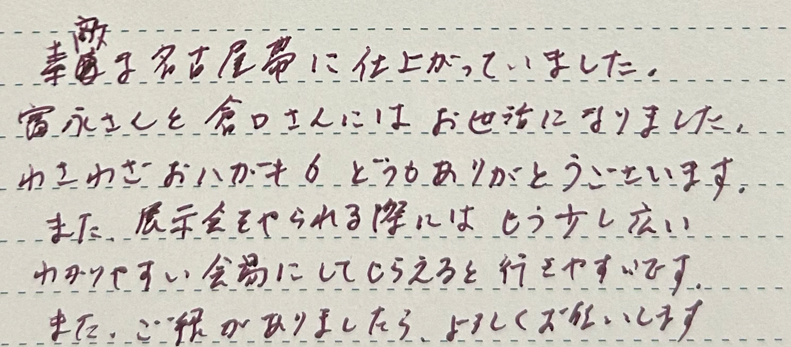 素敵な名古屋帯に仕上がっていました。
富永さんと倉口さんにはお世話になりました。
わざわざおハガキもどうもありがとうございます。
また、展示会をやられる際にはもう少し広い
わかりやすい会場にしてもらえると行きやすいです。
また、ご縁がありましたら、よろしくお願いします